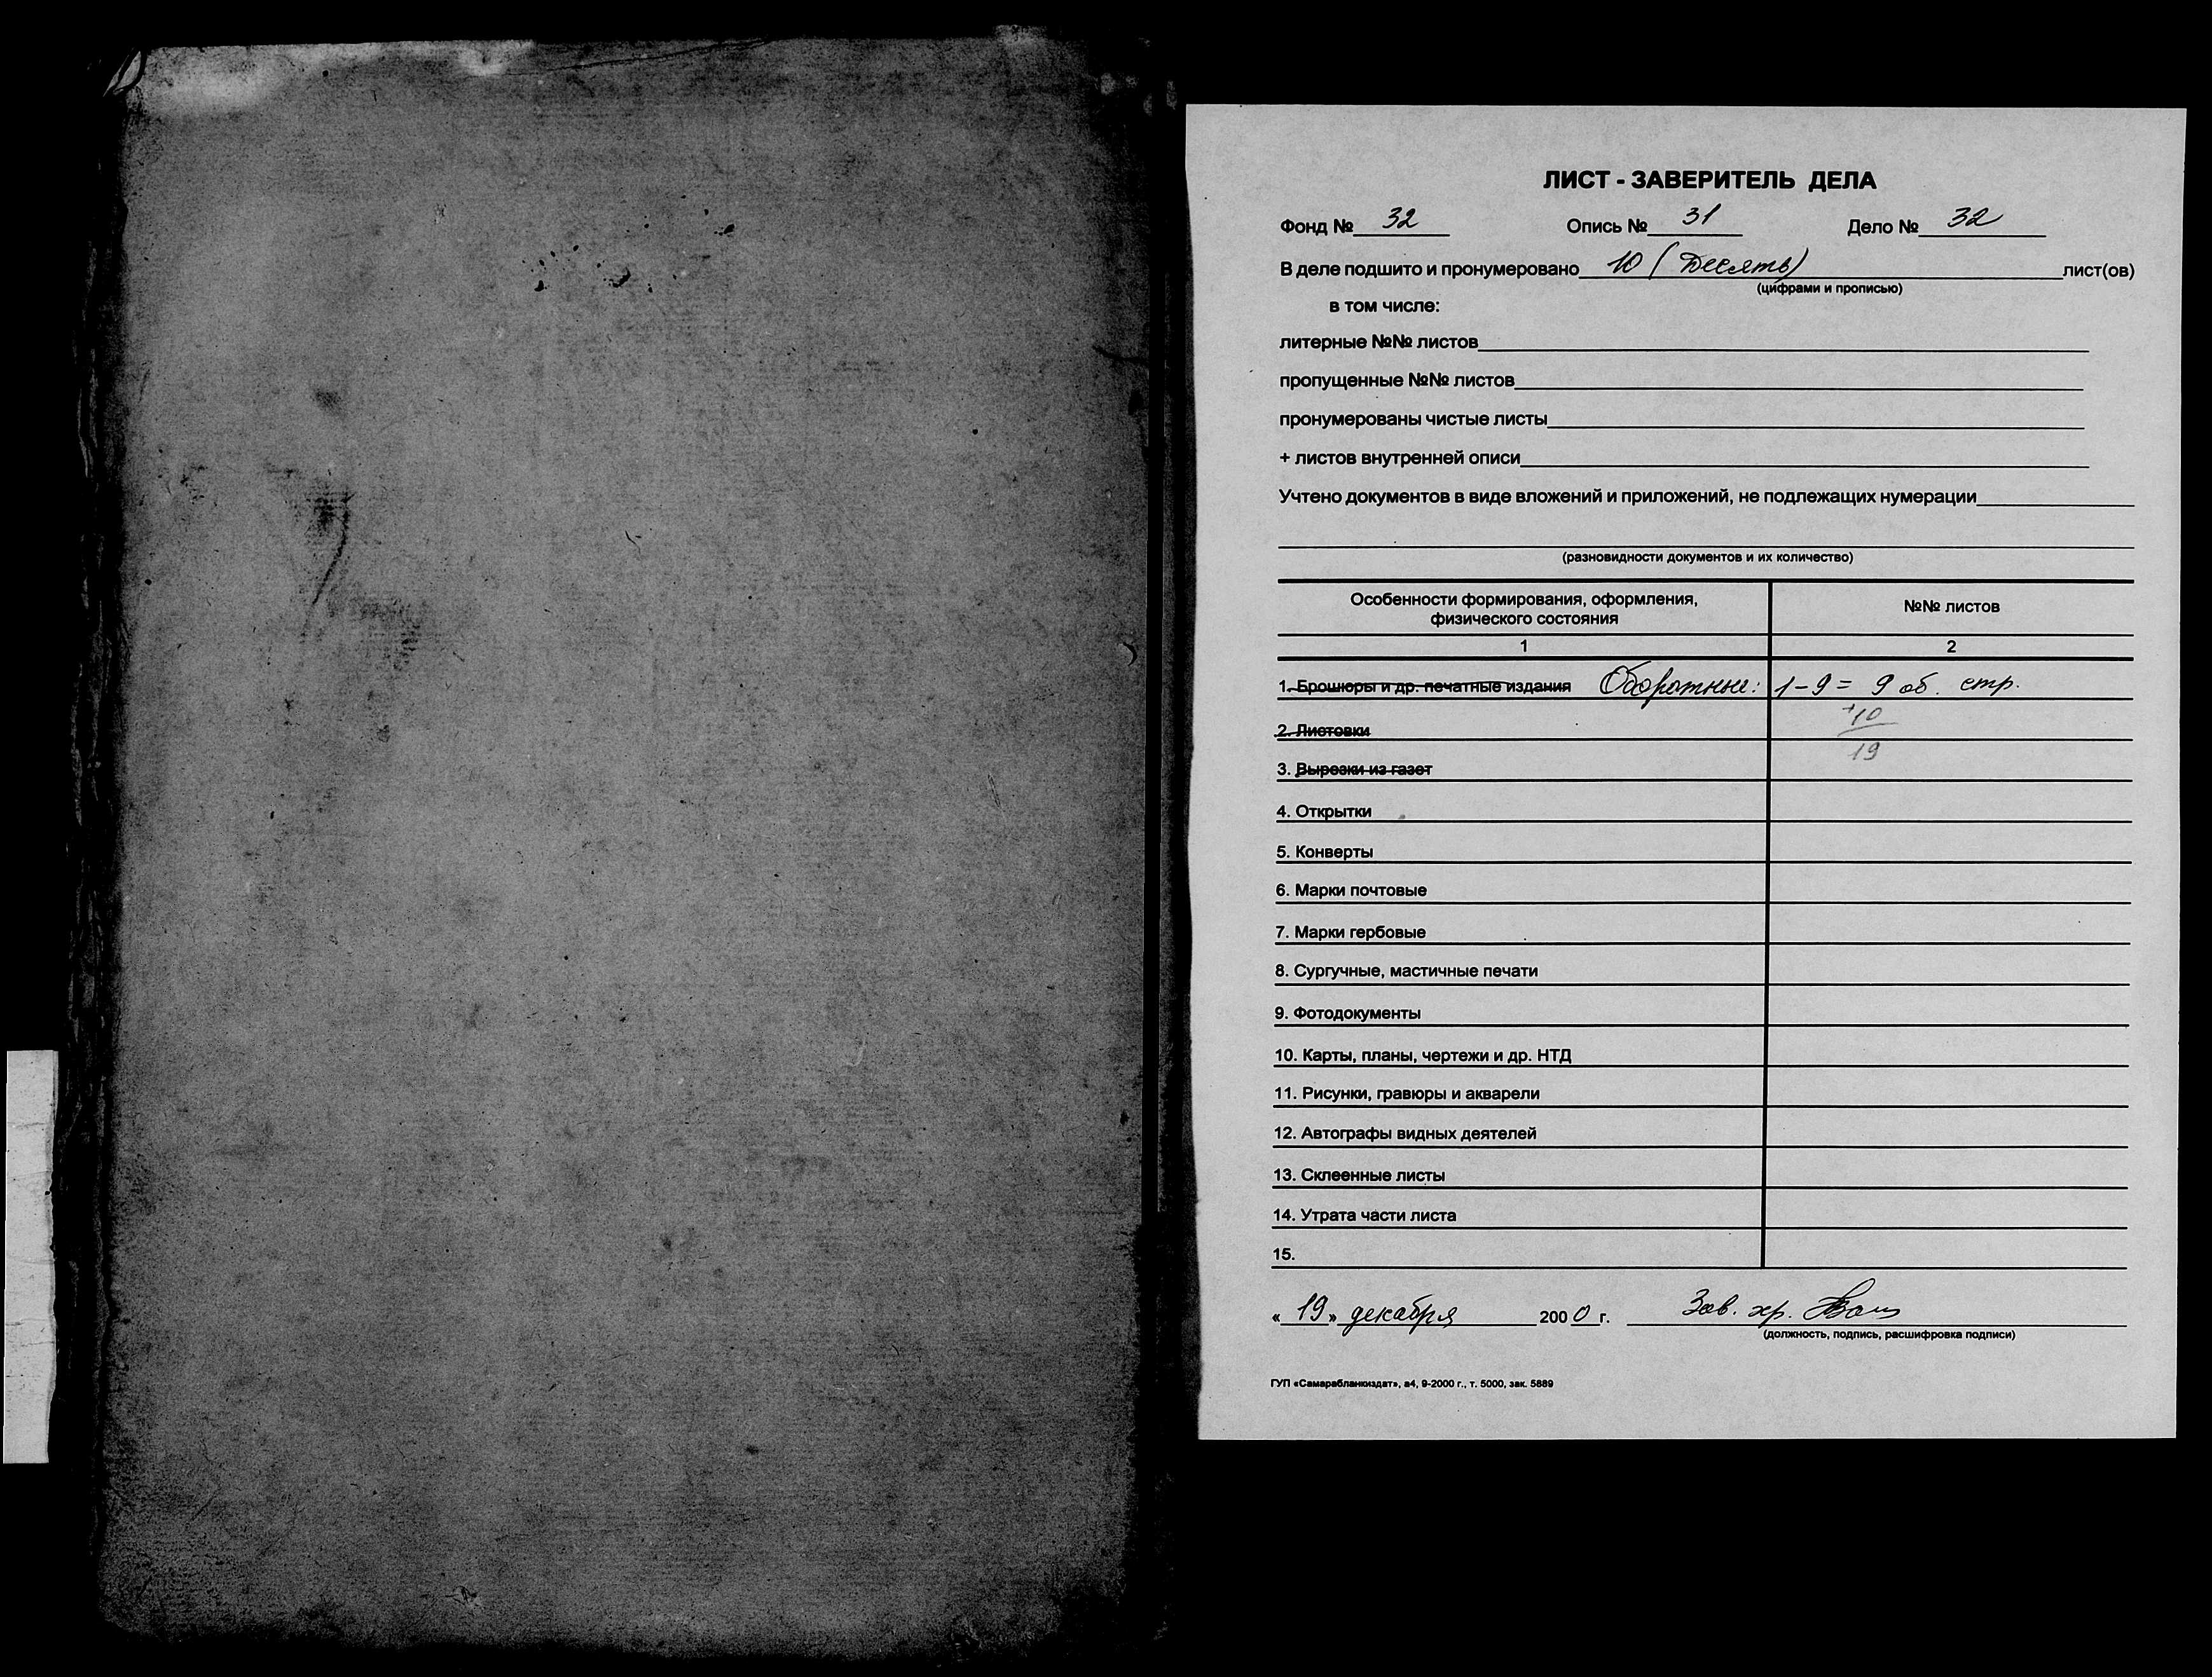 ЛИСТ - ЗАВЕРИТЕЛЬ ДЕЛА
Фонд № 32 Опись № 31 Дело № 32
В деле подшито и пронумеровано 10 (Десять) лист(ов)
(цифрами и прописью)
в том числе:
литерные №№ листов
пропущенные №№ листов
пронумерованы чистые листы
+ листов внутренней описи
Учтено документов в виде вложений и приложений, не подлежащих нумерации
(разновидности документов и их количество)
Особенности формирования, оформления, №№ листов
физического состояния
1 2
1. Брошюры и др. печатные издания Оборотные: 1-9 = 9 об. стр.
2. Листовки +10
3. Вырезки из газет 19
4. Открытки
5. Конверты
6. Марки почтовые
7. Марки гербовые
8. Сургучные, мастичные печати
9. Фотодокументы
10. Карты, планы, чертежи и др. НТД
11. Рисунки, гравюры и акварели
12. Автографы видных деятелей
13. Склеенные листы
14. Утрата части листа
15.
« 19 » декабря 2000 г. Зав. хр.
(должность, подпись, расшифровка подписи)
ГУП «Самарабланкиздат», а4, 9-2000 г., т. 5000, зак. 5889